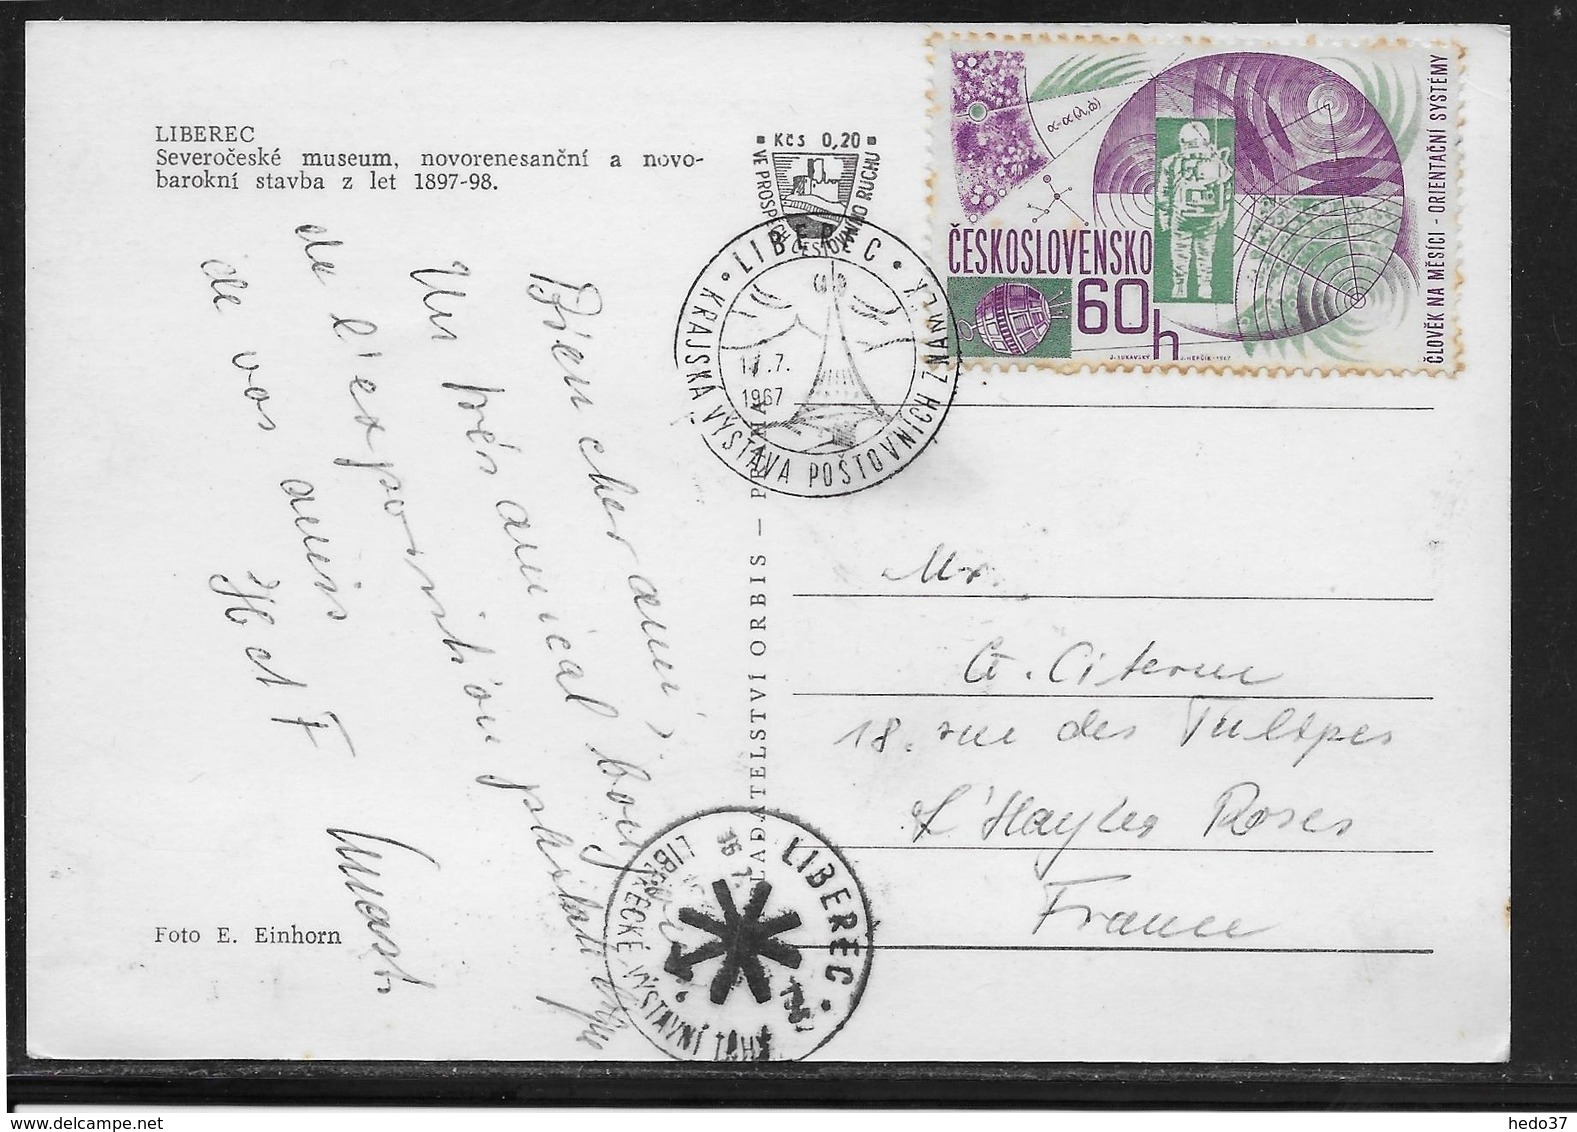 LIBEREC
Severočeské museum, novorenesanční a novo-
barokní stavba z let 1897-98.
Kčs 0,20
VE PROSPĚCH CESTOVNÍHO RUCHU
LIBEREC
KRAJSKÁ VÝSTAVA POŠTOVNÍCH ZNÁMEK
7.
1967
α-α(λ,φ)
ČESKOSLOVENSKO
60h
J. LUKAVSKÝ J. HERČÍK-1967
ČLOVĚK NA MĚSÍCI - ORIENTAČNÍ SYSTÉMY
Bien cher ami,
Un très amical bonjour
de l'exposition philatélique
de vos amis
H et F
Mr.
G. Citerne
18. rue des Tulipes
L'Hay les Roses
France
NAKLADATELSTVÍ ORBIS — PRAHA
LIBEREC
16 7
LIBERECKÉ VÝSTAVNÍ TRHY
Foto E. Einhorn
hedo37